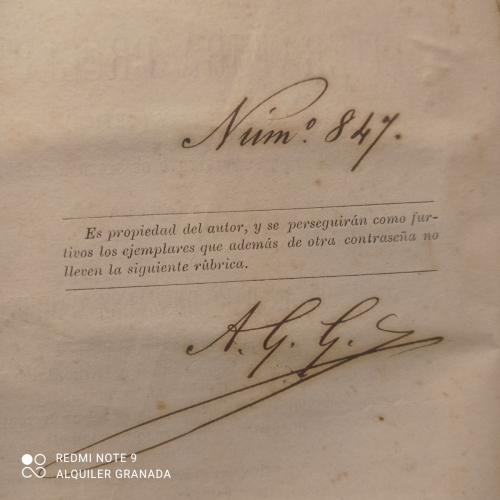 Núm.º 847.
Es propiedad del autor, y se perseguirán como fur-
tivos los ejemplares que además de otra contraseña no
lleven la siguiente rúbrica.
A. G. G.
REDMI NOTE 9
ALQUILER GRANADA